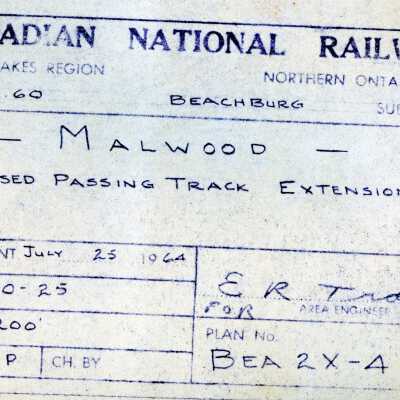 ADIAN NATIONAL RAILW
AKES REGION NORTHERN ONTA
.60 BEACHBURG SUB
— MALWOOD —
SED PASSING TRACK EXTENSION
NT JULY 25 1964
0-25 E R
FOR AREA ENGINEER
200'
PLAN NO.
P CH. BY BEA 2X-4